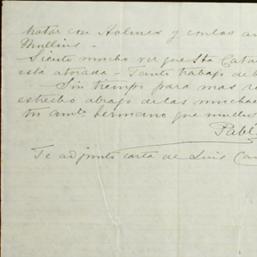 tratar con Holmes y con las
Mullins -
Siento mucho ver que Sta Cata
está atorada - Tanto trabajo de
Sin tiempo para mas re
estrecho abrazo de las muchac
tu amte hermano que mucho
Pabl
Te adjunto carta de Luis Ca